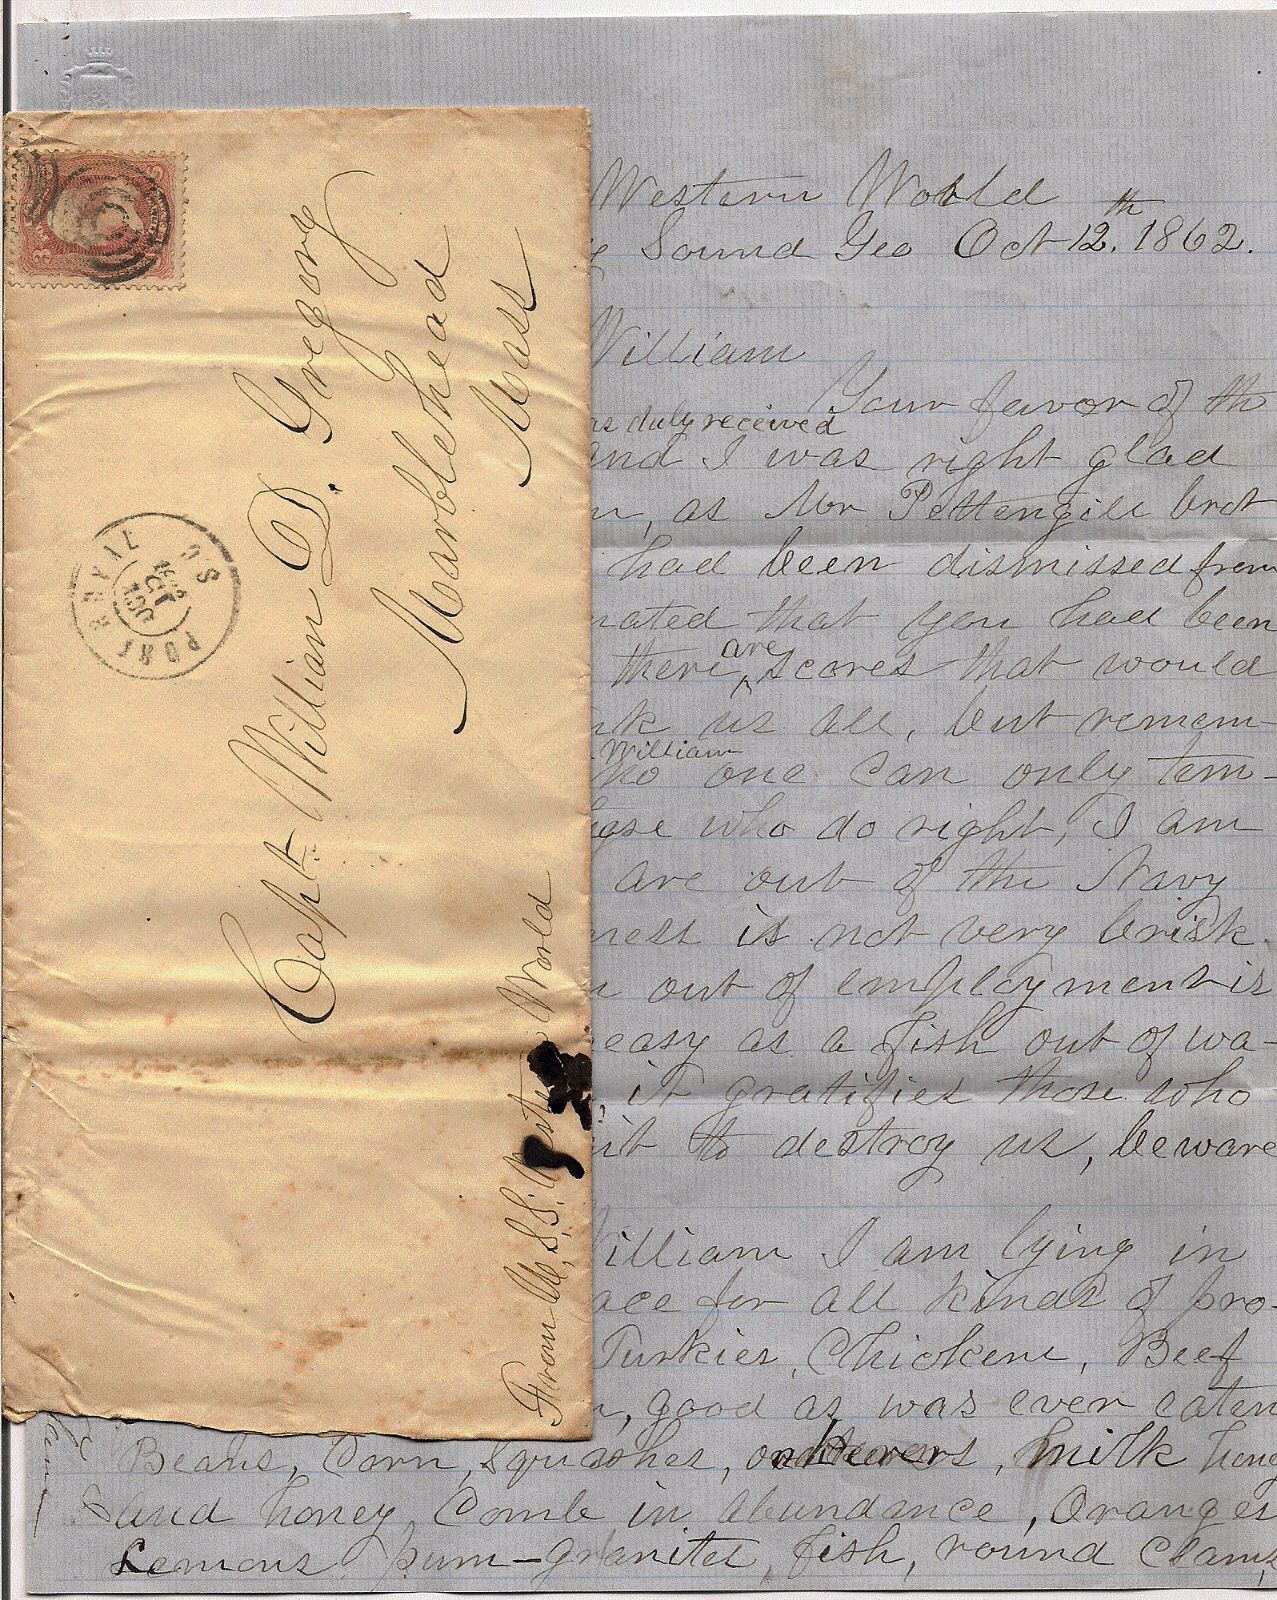 Capt. William D. Gregory
Marblehead
Mass
From U.S.S. Western World
PORT ROYAL S.C.
OCT
1862
3
Western World
Sound Geo Oct 12th. 1862.
William
Your favor of the
duly received
and I was right glad
as Mr Pettengill brot
had been dismissed from
that you had been
there are scores that would
us all, but remem-
William
no one can only tem-
those who do right, I am
are out of the Navy
is not very brisk.
out of employment is
easy as a fish out of wa-
it gratifies those who
to destroy us, beware
William I am lying in
for all kinds of pro-
Turkies, Chickens, Beef
good as was ever eaten
Beans, Corn, Squashes, milk hony
and honey Comb in abundance, Oranges
Lemons pum-granites, fish, round Clams,